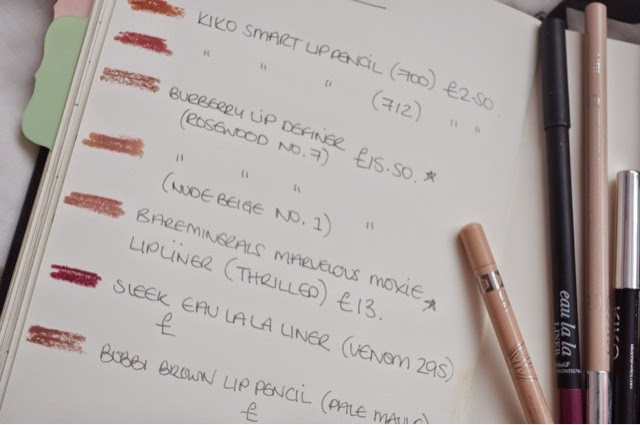 KIKO SMART LIP PENCIL (700) £2.50
" " " (712) " "
BURBERRY LIP DEFINER
(ROSEWOOD NO.7) £15.50. *
" " "
(NUDE BEIGE NO.1) "
BAREMINERALS MARVELOUS MOXIE
LIPLINER (THRILLED) £13. *
SLEEK EAU LA LA LINER (VENOM 295)
£
BOBBI BROWN LIP PENCIL (PALE MAUVE
£
eau la la
LINER
KIKO